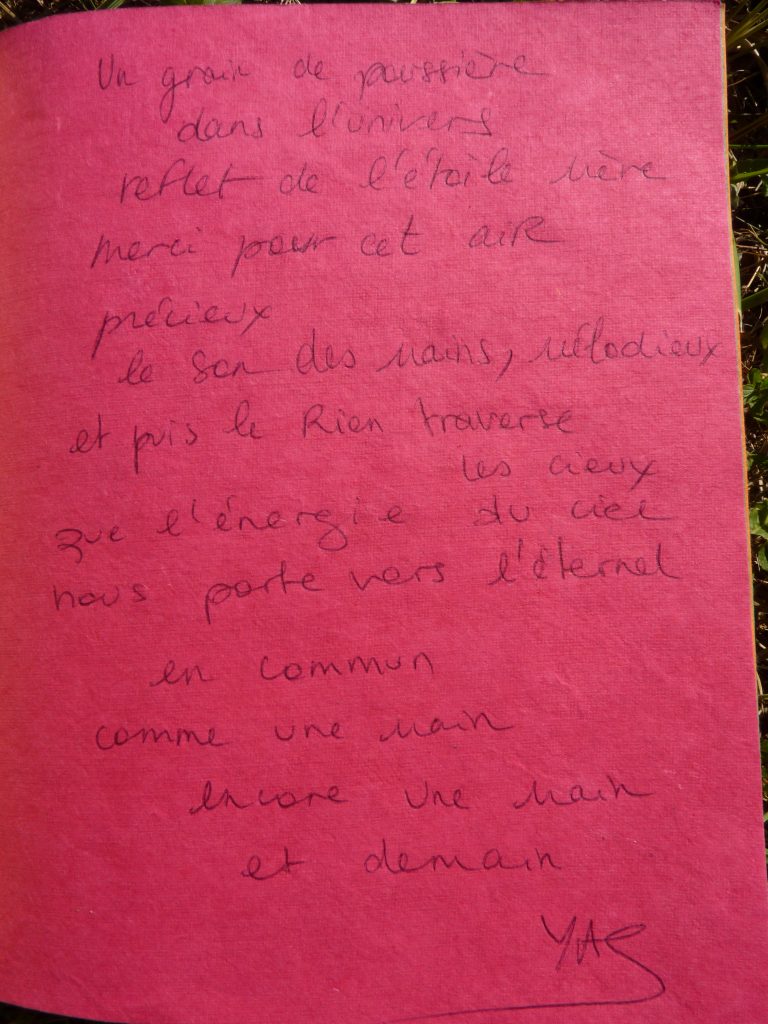 Un grain de poussière
dans l'univers
reflet de l'étoile mère
merci pour cet air
précieux
le son des mains, mélodieux
et puis le Rien traverse
les cieux
que l'énergie du ciel
nous porte vers l'éternel
en commun
comme une main
encore une main
et demain
YAS